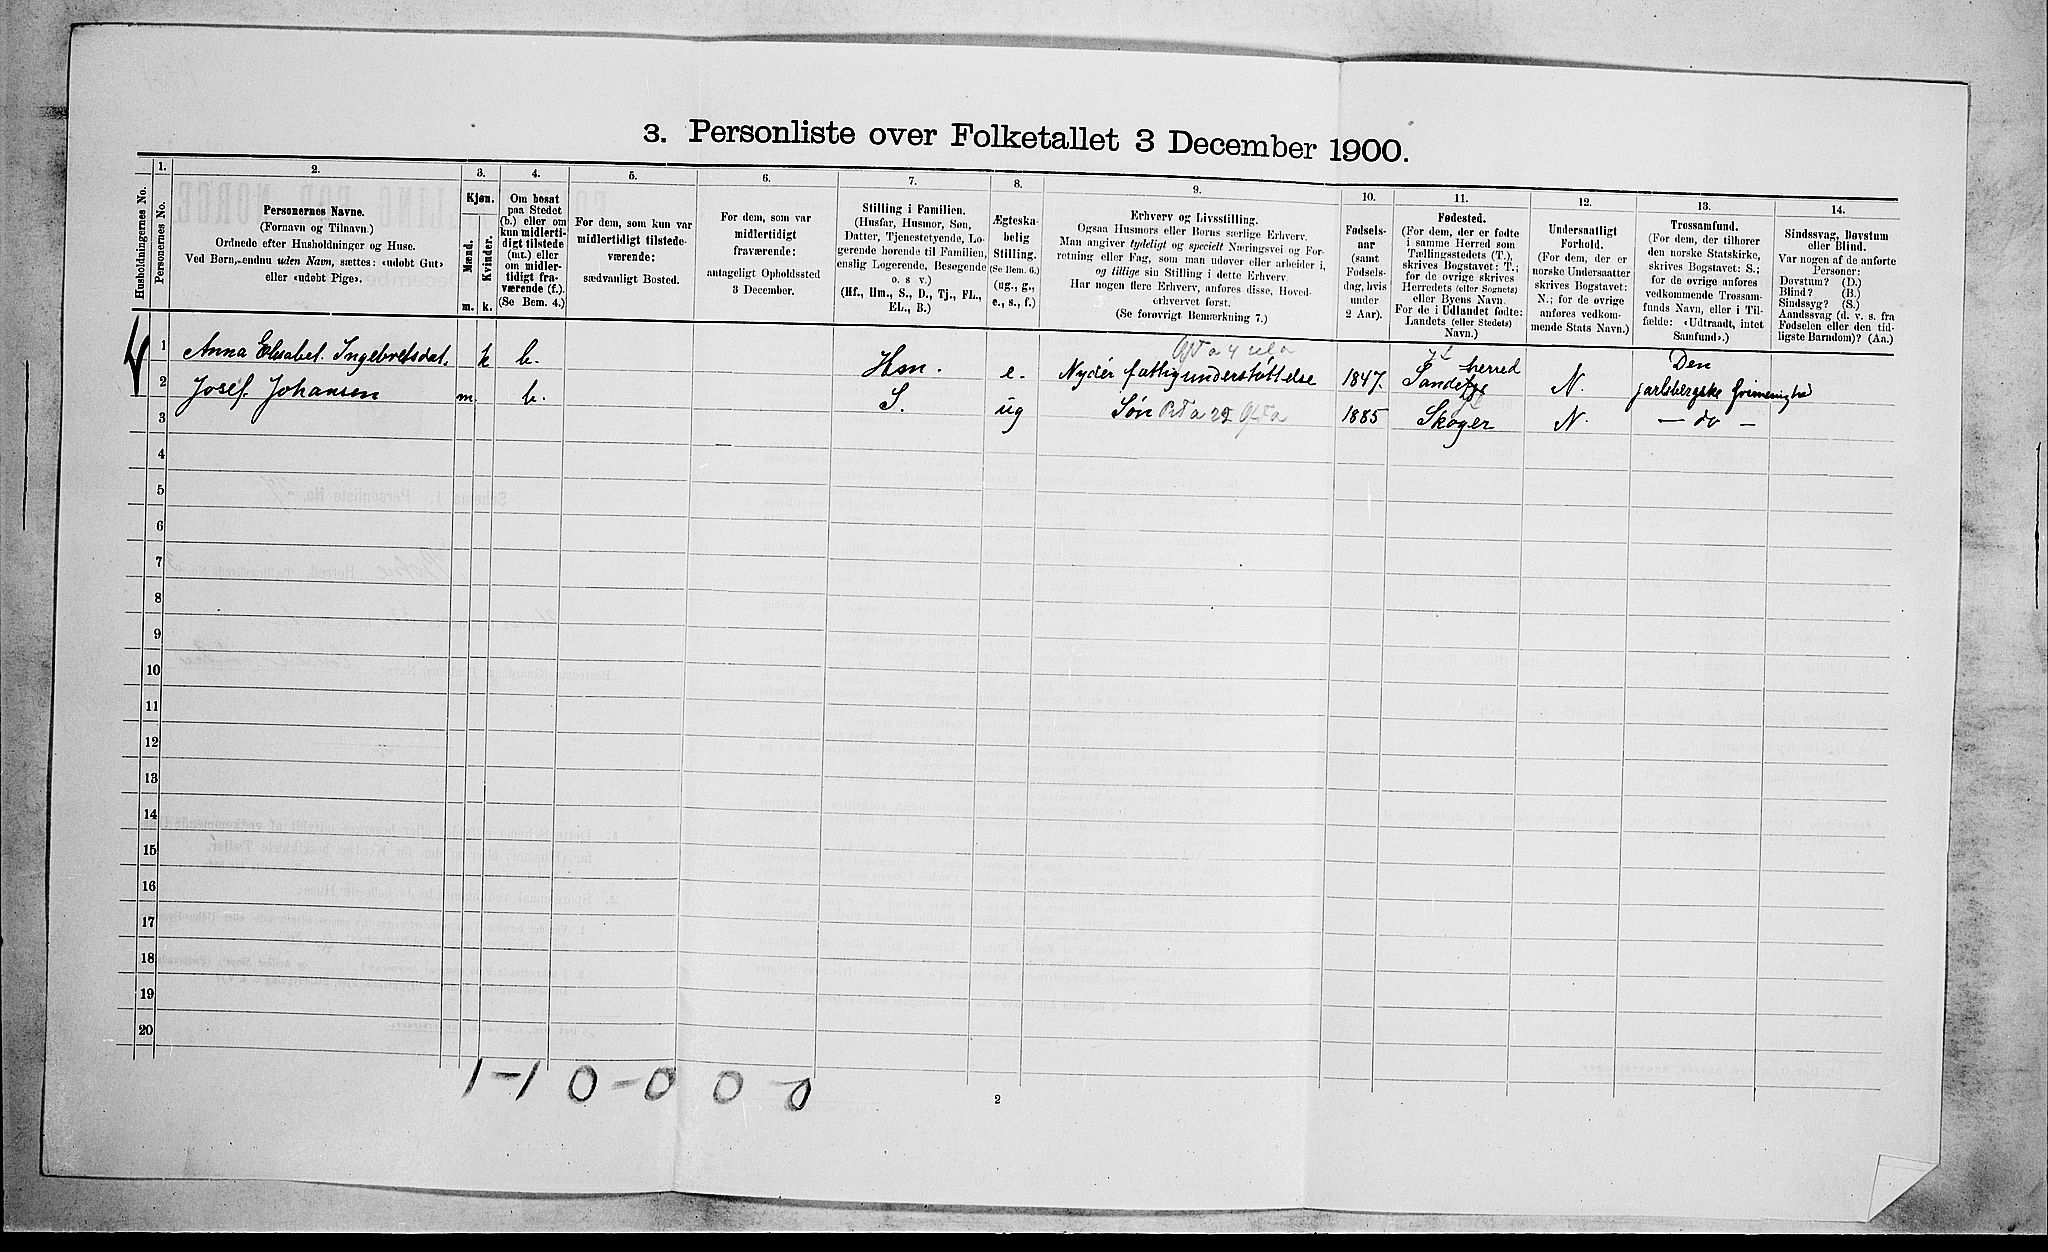 3. Personliste over Folketallet 3 December 1900.
Husholdningernes No.
1.
Personernes No.
2.
Personernes Navne.
(Fornavn og Tilnavn.)
Ordnede efter Husholdninger og Huse.
Ved Børn, endnu uden Navn, sættes: «udøbt Gut»
eller «udøbt Pige».
3.
Kjøn.
Mænd.
Kvinder.
m.
k.
4.
Om bosat
paa Stedet
(b.) eller om
kun midlerti-
digt tilstede
(mt.) eller
om midler-
tidigt fra-
værende (f.).
(Se Bem. 4.)
5.
For dem, som kun var
midlertidigt tilstede-
værende:
sædvanligt Bosted.
6.
For dem, som var
midlertidigt
fraværende:
antageligt Opholdssted
3 December.
7.
Stilling i Familien.
(Husfar, Husmor, Søn,
Datter, Tjenestetyende, Lo-
gerende hørende til Familien,
enslig Logerende, Besøgende
o. s v.)
(Hf., Hm., S., D., Tj., FL.,
EL., B.)
8.
Ægteska-
belig
Stilling.
(Se Bem. 6.)
(ug., g.,
e., s., f.)
9.
Erhverv og Livsstilling.
Ogsaa Husmors eller Børns særlige Erhverv.
Man angiver tydeligt og specielt Næringsvei og For-
retning eller Fag, som man udøver eller arbeider i,
og tillige sin Stilling i dette Erhverv.
Har nogen flere Erhverv, anføres disse, Hoved-
erhvervet først.
(Se forøvrigt Bemærkning 7.)
10.
Fødsels-
aar
(samt
Fødsels-
dag, hvis
under
2 Aar).
11.
Fødested.
(For dem, der er fødte
i samme Herred som
Tællingsstedets (T.),
skrives Bogstavet: T.;
for de øvrige skrives
Herredets (eller Sognets)
eller Byens Navn.
For de i Udlandet fødte:
Landets (eller Stedets)
Navn.)
12.
Undersaatligt
Forhold.
(For dem, der er
norske Undersaatter
skrives Bogstavet:
N.; for de øvrige
anføres vedkom-
mende Stats Navn.)
13.
Trossamfund.
(For dem, der tilhører
den norske Statskirke,
skrives Bogstavet: S.;
for de øvrige anføres
vedkommende Trossam-
funds Navn, eller i Til-
fælde: «Udtraadt, intet
Samfund».)
14.
Sindssvag, Døvstum
eller Blind.
Var nogen af de anførte
Personer:
Døvstum? (D.)
Blind? (B.)
Sindssyg? (S.)
Aandssvag (d. v. s. fra
Fødselen eller den tid-
ligste Barndom)? (Aa.)
1 Anna Elisabet. Ingebretsdat. k b. Hm. e. Nyder fattigunderstøttelse 1847. Sandeherred N. Den jarlsbergske frimenighed
2 Josef. Johansen m. b. S. ug Søn 1885 Skoger N. — do —
3
4
5
6
7
8
9
10
11
12
13
14
15
16
17
18
19
20
1-1 0-0 0 0
2